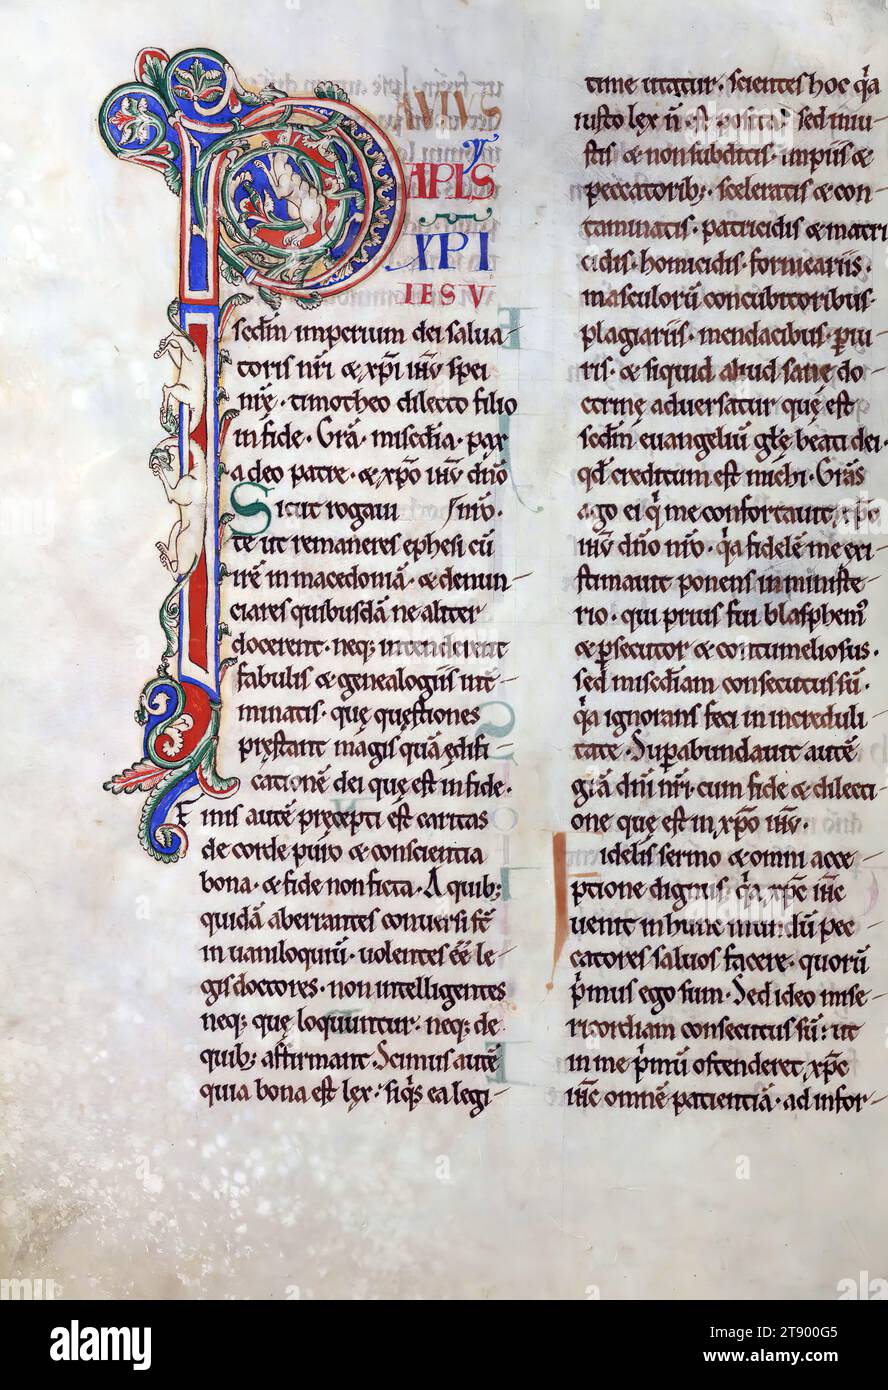 PAVLVS
APLS
XPI
IESV
sedm imperium dei salua-
toris nri & xpi ihu spei
nrę · timotheo dilecto filio
in fide · Gra · miscdia · pax
a deo patre · & xpo ihu dno
Sicut rogaui nro ·
te ut remaneres ephesi cu
ire in macedonia · & denun-
ciares quibusda ne aliter
docerent · neq; intenderent
fabulis & genealogiis inte-
minatis · quę quęstiones
pręstant magis qua ędifi-
catione dei quę est in fide ·
Finis aute pręcepti est caritas
de corde puro & conscientia
bona · & fide non ficta · A quib;
quida aberrantes conuersi st
in uaniloquiu · uolentes ee le-
gis doctores · non intelligentes
neq; quę loquuntur · neq; de
quib; affirmant Scimus aute
quia bona est lex · siqs ea legi-
time utatur · scientes hoc qa
iusto lex n est posita · sed iniu-
stis & non subditis · impiis &
peccatorib; · sceleratis & con-
taminatis · patricidis & matri
cidis · homicidis · fornicariis ·
masculoru concubitoribus ·
plagiariis · mendacibus · piu-
ris · & siquid aliud sanę do-
ctrinę aduersatur quę est
sedm euangeliu glę beati dei ·
qd creditum est michi · Gras
ago ei q me confortauit xpo
ihu dno nro · qa fidele me exi-
stimauit ponens in ministe-
rio · qui prius fui blasphem'
& psecutor & contumeliosus ·
sed misediam consecutus su ·
qa ignorans feci in increduli
tate · Supabundauit aute
gra dni nri · cum fide & dilecti-
one quę est in xpo ihu ·
Fidelis sermo & omni acce-
ptione dignus · qa xpc ihc
uenit in hunc mundu pec-
catores saluos facere · quoru
pmus ego sum · Sed ideo mise-
ricordiam consecutus su : ut
in me pmu ostenderet xpc
ihc omne patientia · ad infor-
alamy
Image ID: 2T900G5
www.alamy.com